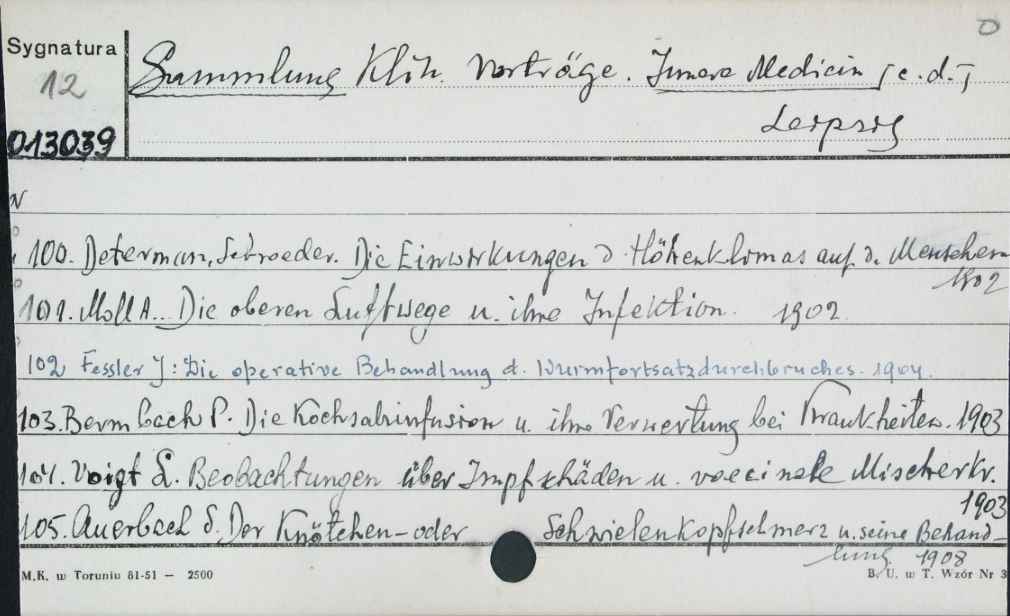 Sygnatura
12
013039
Sammlung Klin. Vorträge. Innere Medicin [c.d.]
Leipzig
N
100. Determan, Schroeder. Die Einwirkungen d. Höhenklimas auf d. Menschen
1902
101. Moll A. Die oberen Luftwege u. ihre Infektion. 1902.
102 Fessler J: Die operative Behandlung d. Wurmfortsatzdurchbruches. 1904.
103. Bermbach P. Die Kochsalzinfusion u. ihre Verwertung bei Krankheiten. 1903
104. Voigt L. Beobachtungen über Impfschäden u. vaccinale Mischerkr.
1903
105. Auerbach S. Der Knötchen- oder Schwielenkopfschmerz u. seine Behand-
lung. 1908
M.K. w Toruniu 81-51 — 2500
B. U. w T. Wzór Nr 3